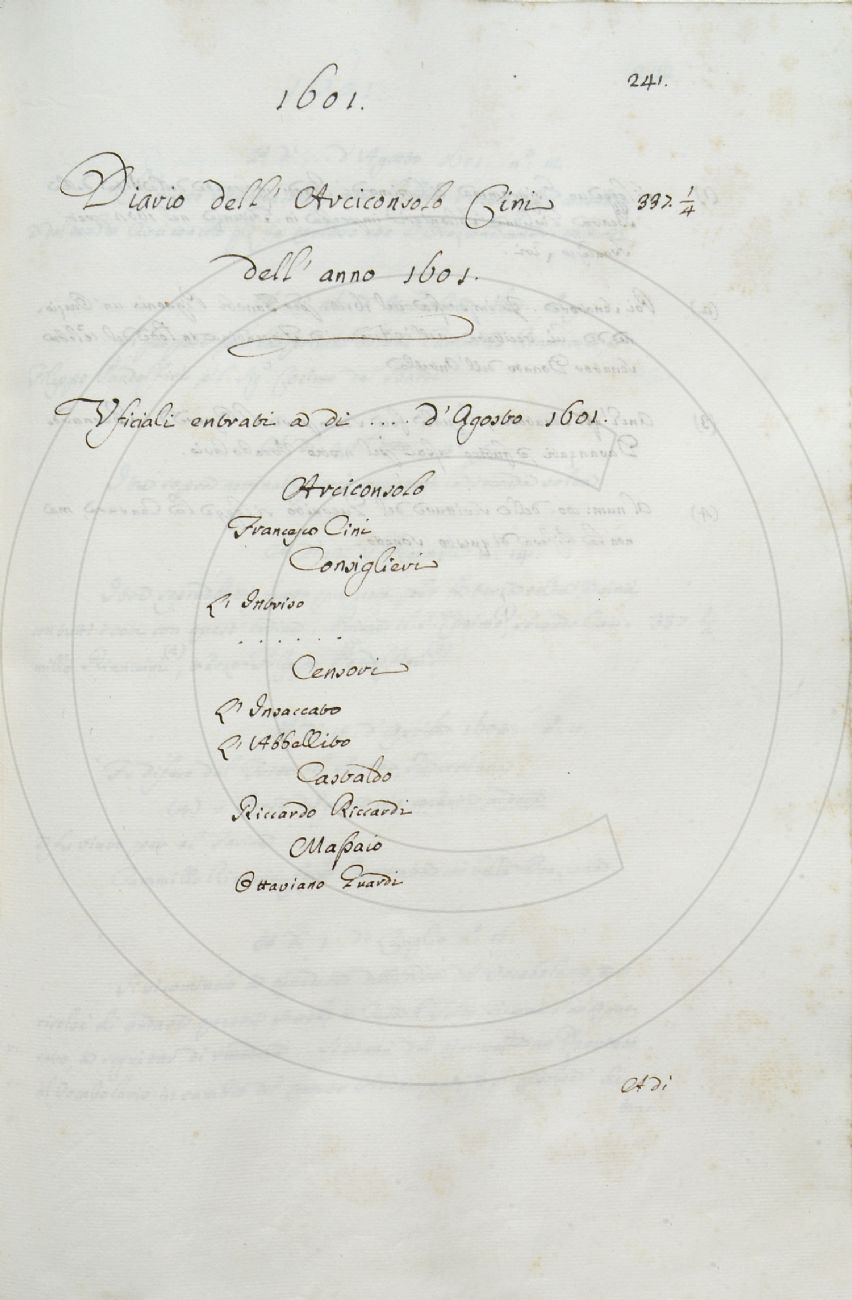 241.
1601.
Diario dell' Arciconsolo Cini 337. 1/4
dell' anno 1601.
Vficiali entrati a di .... d' Agosto 1601.
Arciconsolo
Francesco Cini
Consiglieri
L' Intriso
. . . . . .
Censori
L' Insaccato
L' Abbellito
Castaldo
Riccardo Riccardi
Massaio
Ottaviano
A di